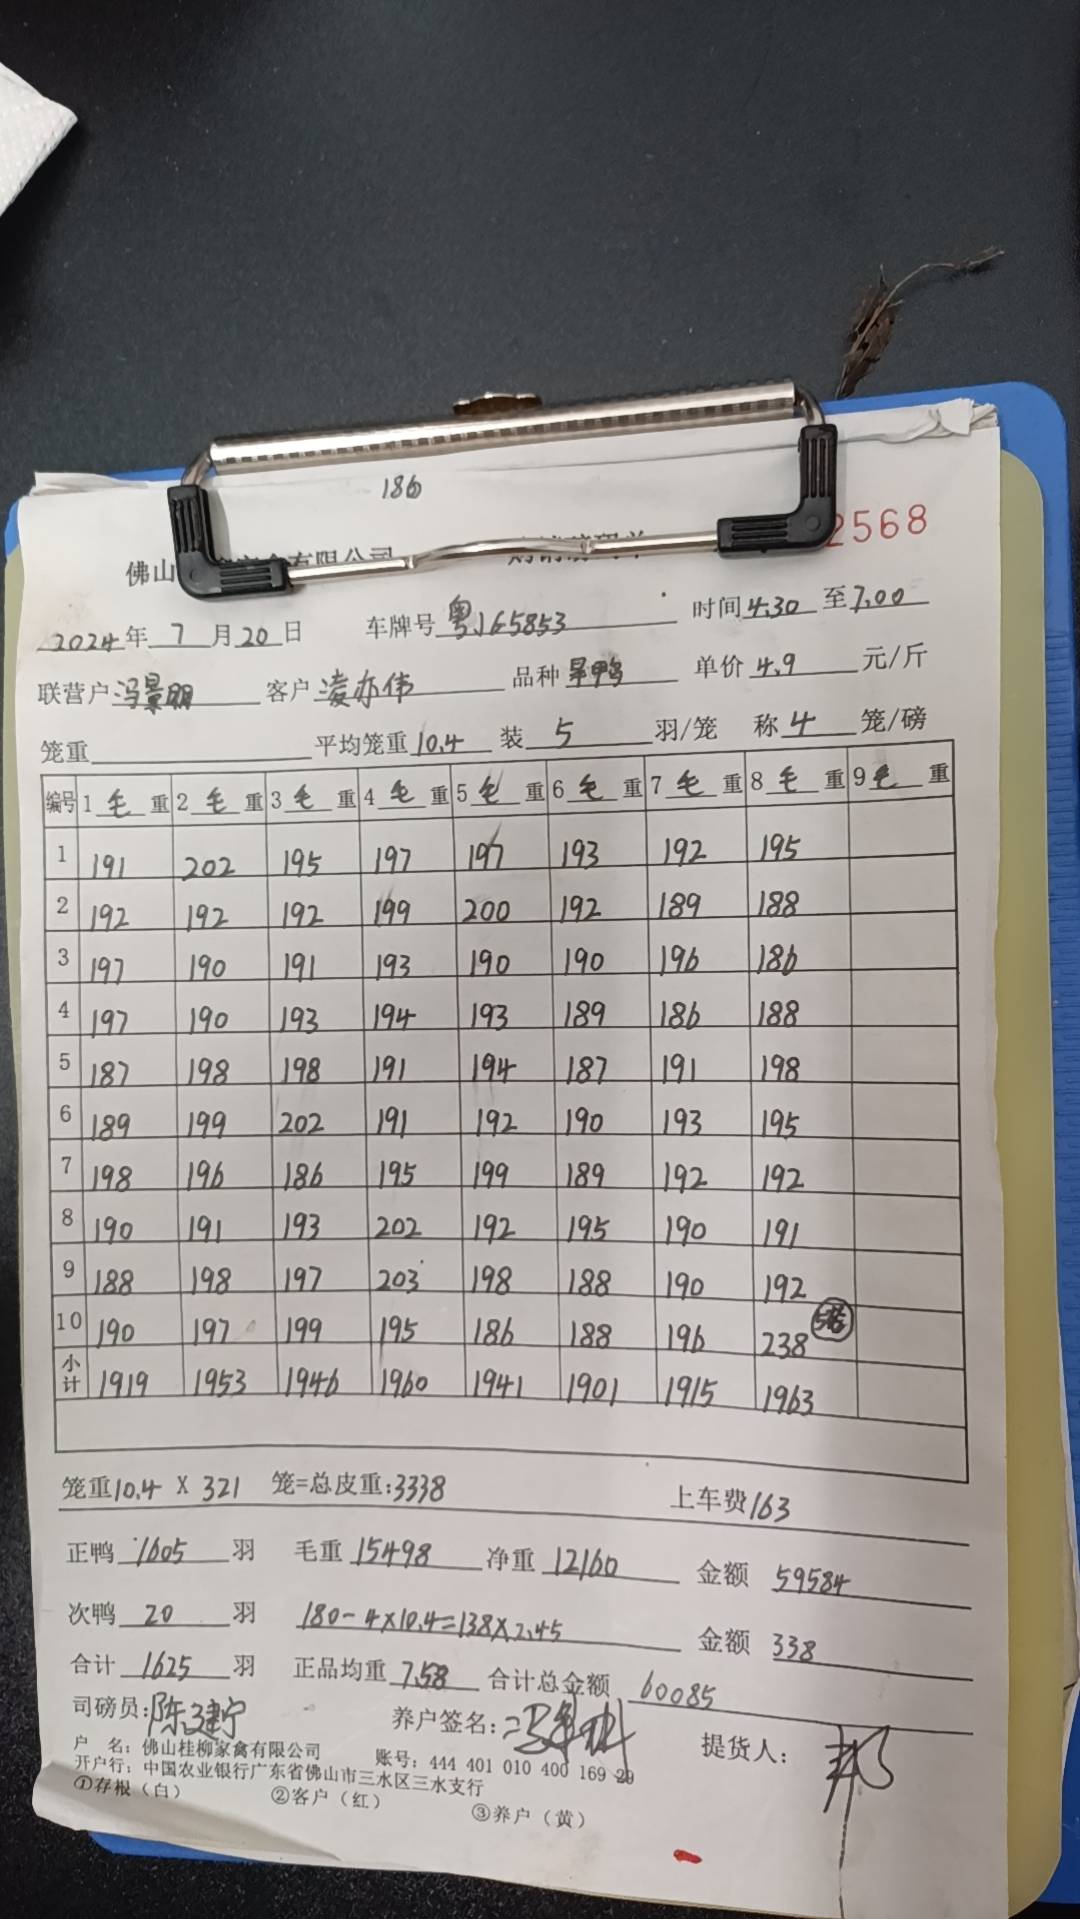 186
佛山
有限公司
2568
2024年 7 月 20 日 车牌号 粤J65853 时间 4.30 至 7.00
联营户 冯景朋 客户 凌亦伟 品种 旱鸭 单价 4.9 元/斤
笼重 平均笼重 10.4 装 5 羽/笼 称 4 笼/磅
编号 1 毛 重 2 毛 重 3 毛 重 4 毛 重 5 毛 重 6 毛 重 7 毛 重 8 毛 重 9 毛 重
1 191 202 195 197 197 193 192 195
2 192 192 192 199 200 192 189 188
3 197 190 191 193 190 190 196 186
4 197 190 193 194 193 189 186 188
5 187 198 198 191 194 187 191 198
6 189 199 202 191 192 190 193 195
7 198 196 186 195 199 189 192 192
8 190 191 193 202 192 195 190 191
9 188 198 197 203 198 188 190 192
10 190 197 199 195 186 188 196 238 5笼
小计 1919 1953 1946 1960 1941 1901 1915 1963
笼重 10.4 X 321 笼=总皮重:3338 上车费 163
正鸭 1605 羽 毛重 15498 净重 12160 金额 59584
次鸭 20 羽 180-4×10.4=138×2.45 金额 338
合计 1625 羽 正品均重 7.58 合计总金额 60085
司磅员: 陈建宁 养户签名: 提货人:
户 名: 佛山桂柳家禽有限公司 账号: 444 401 010 400 169 29
开户行: 中国农业银行广东省佛山市三水区三水支行
①存根（白） ②客户（红） ③养户（黄）